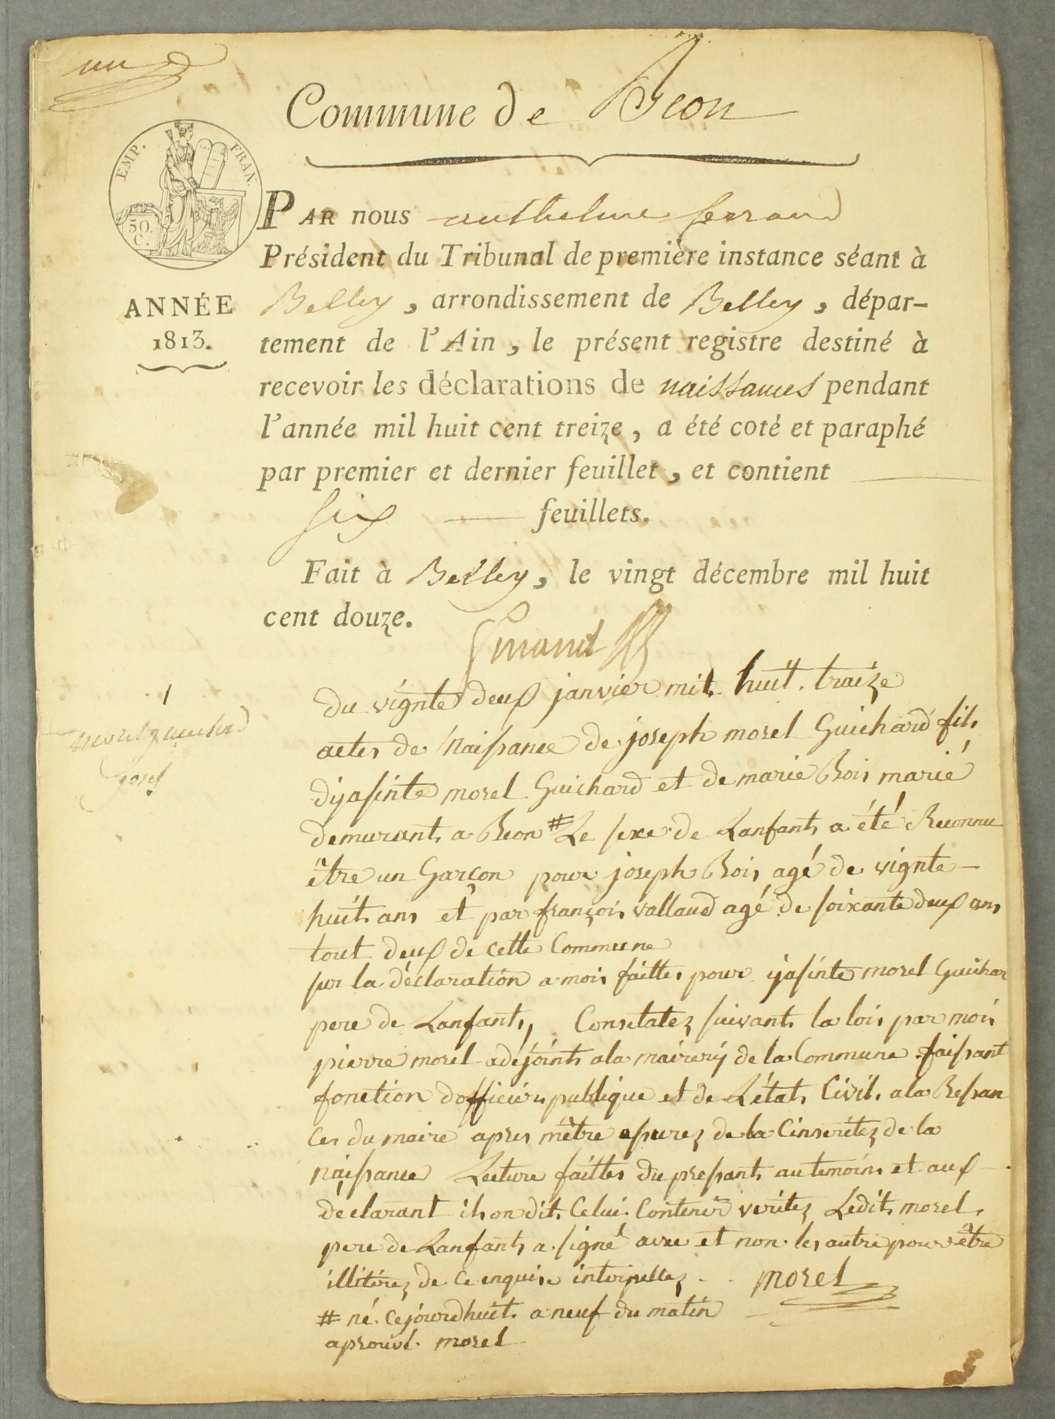 un
Commune de Béon
EMP. FRAN.
30 C.
PAR nous anthelme ferrand
Président du Tribunal de première instance séant à
ANNÉE
1813.
Belley, arrondissement de Belley, dépar-
tement de l'Ain, le présent registre destiné à
recevoir les déclarations de naissances pendant
l'année mil huit cent treize, a été coté et paraphé
par premier et dernier feuillet, et contient
six feuillets.
Fait à Belley, le vingt décembre mil huit
cent douze.
1
morel guichard
josef
Du vignte deux janvier mil huit traize
actes de Naissance de joseph morel Guichard fils
dijasinte morel Guichard et de marie Bois marié
demurant a Beon # Le sexe de Lanfant a été Reconnu
être un Garçon pour joseph Bois agé de vignte
huit ans et par françois vallaud agé de soixante deux ans
tout deux de cette Commune
sur la déclaration a mois faittes pour ijasinte morel Guichar
pere de Lanfant, Constatez suivant la lois par mois
pierre morel adéjoint ala mairerij de la Commune faissant
fonction dofficier publique et de Létat Civil ala Bessan
Ces du maire apres mêtre assurez de la Cinseritez de la
naissance Lecture faittes du pressant au temoins et aux
déclarant ils on dit Celui Contenir veritez Ledit morel
pere de Lanfant a signé avec et non les autre pour être
illitérez de ce enquise interpellez morel
# né cejourdhuit a neuf du matin
aprouvé morel